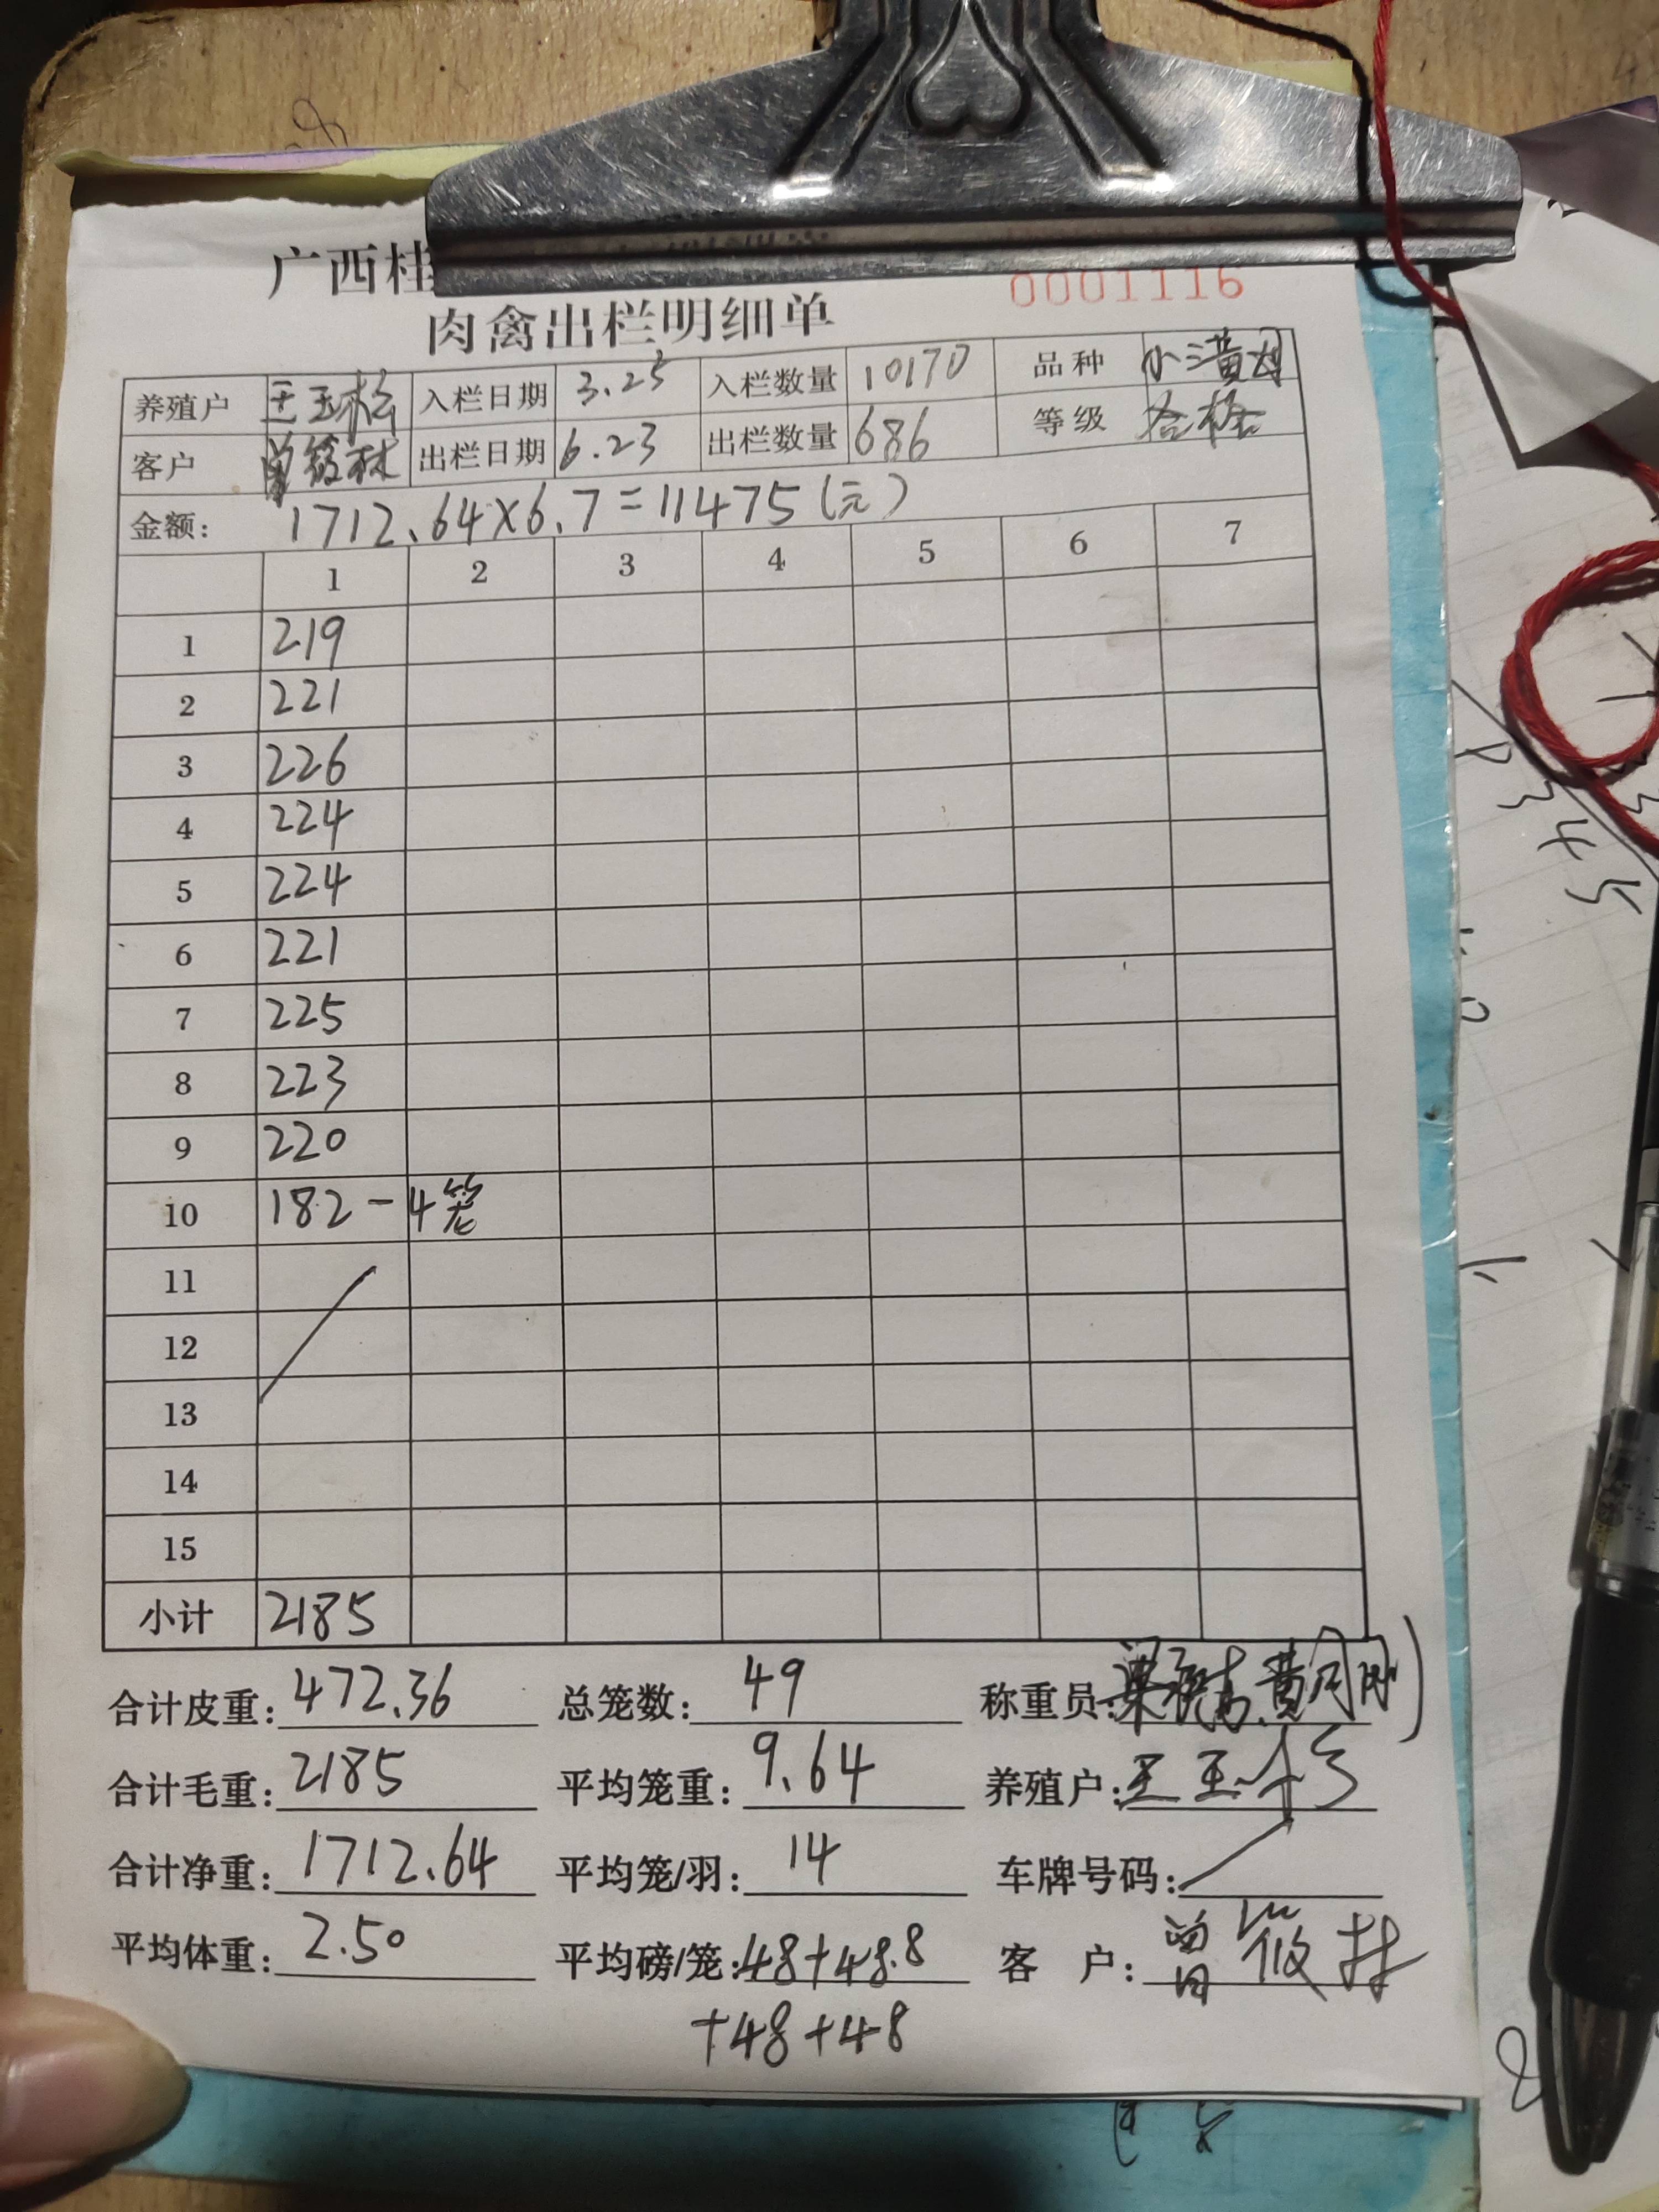 广西桂
肉禽出栏明细单
0001116
养殖户 王玉松 入栏日期 3.25 入栏数量 10170 品种
客户 出栏日期 6.23 出栏数量 686 等级 合格
金额: 1712.64×6.7=11475(元)
1 2 3 4 5 6 7
1 219
2 221
3 226
4 224
5 224
6 221
7 225
8 223
9 220
10 182-4笼
11
12
13
14
15
小计 2185
合计皮重: 472.36 总笼数: 49 称重员:
合计毛重: 2185 平均笼重: 9.64 养殖户: 王玉松
合计净重: 1712.64 平均笼/羽: 14 车牌号码:
平均体重: 2.50 平均磅/笼: 48+48.8 客 户:
+48+48